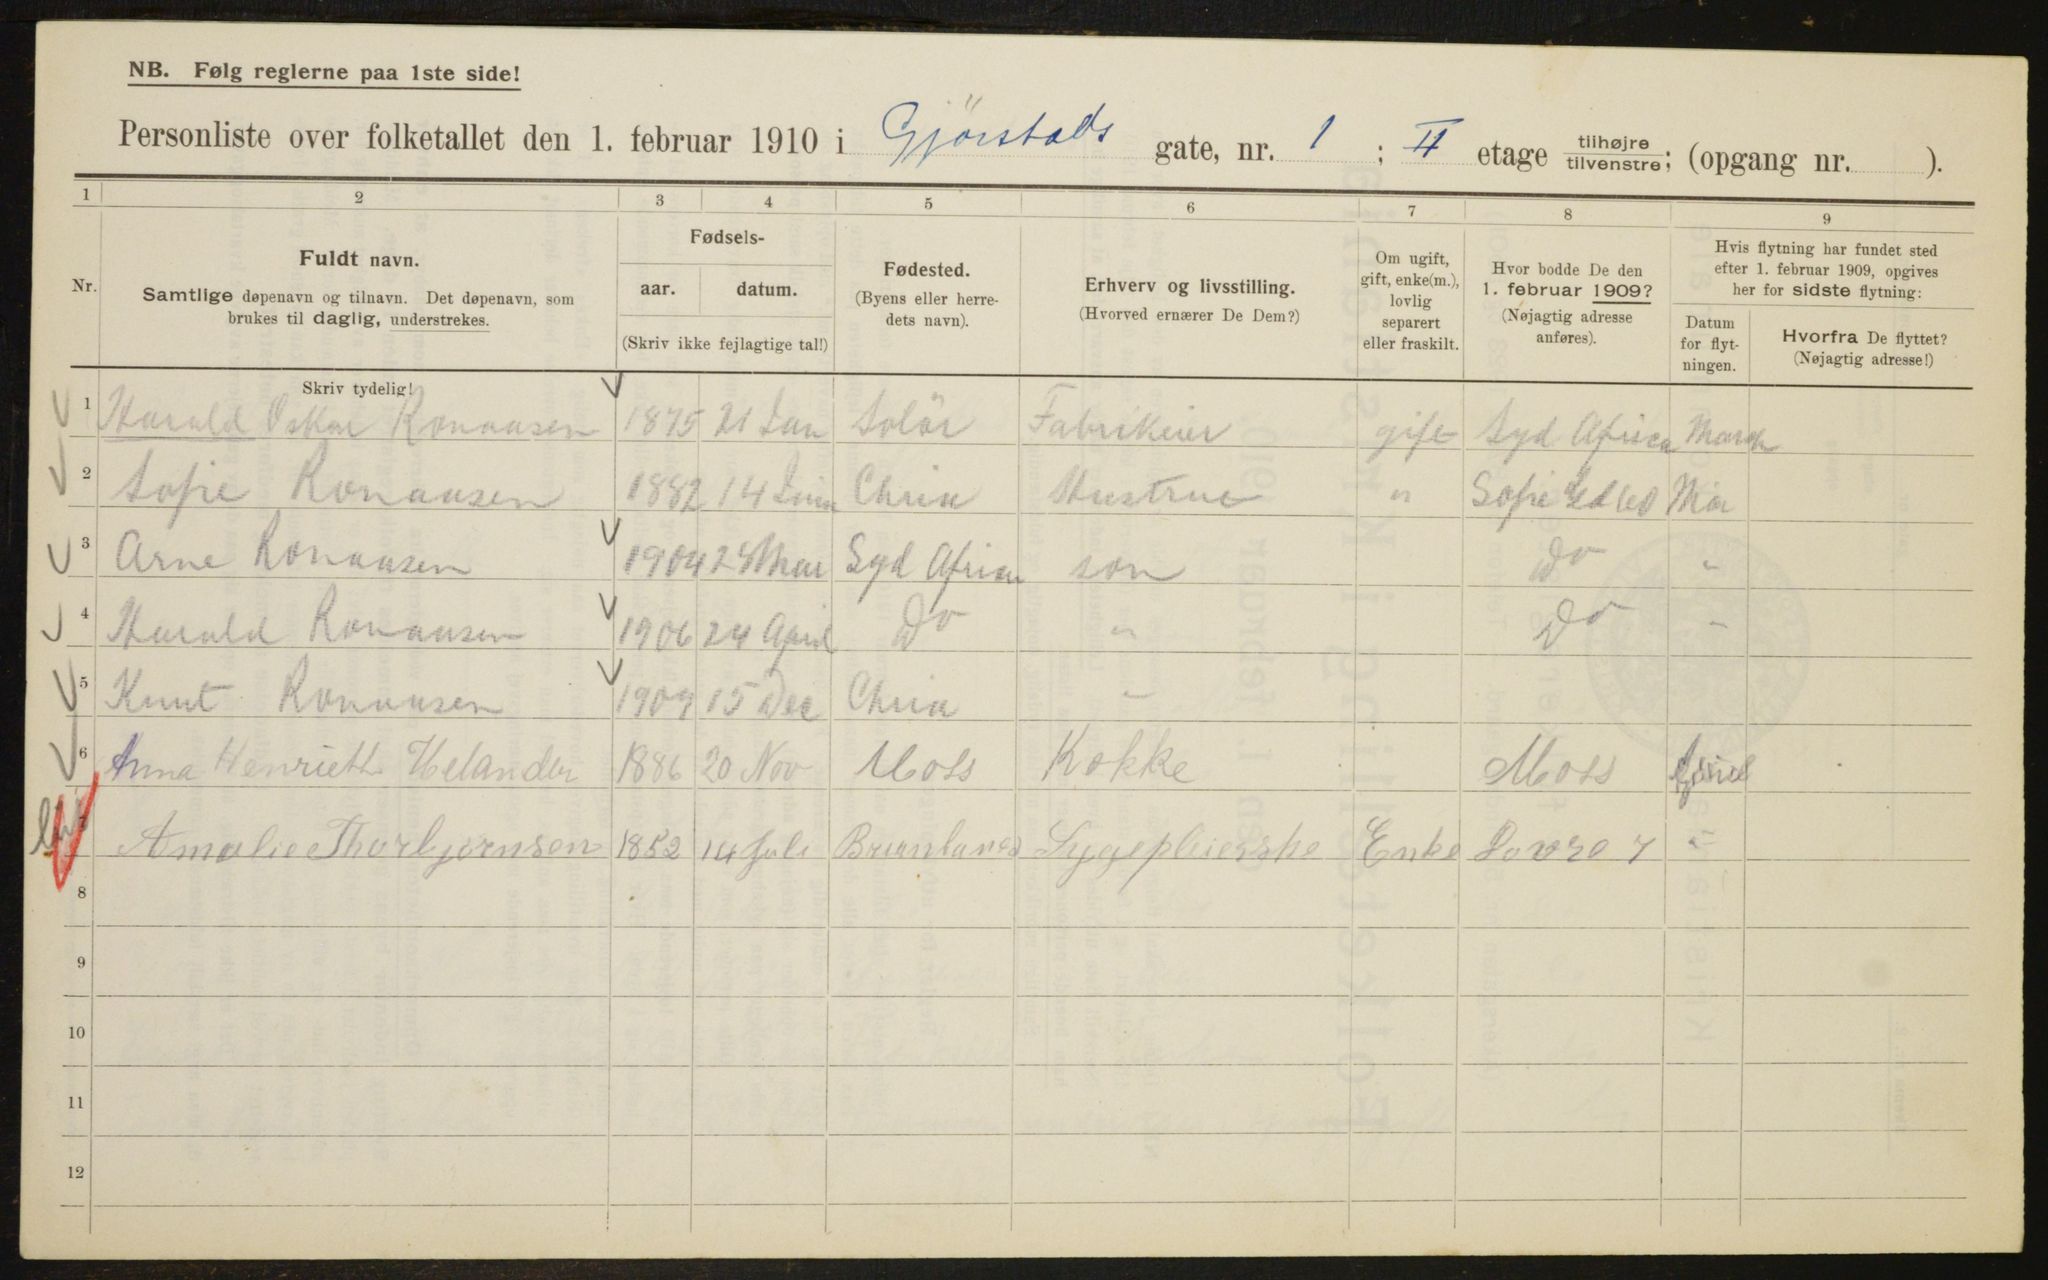 NB. Følg reglerne paa 1ste side!
Personliste over folketallet den 1. februar 1910 i Gjörstads gate, nr. 1 ; II etage tilhøjre tilvenstre; (opgang nr. ).
1 2 3 4 5 6 7 8 9
Nr.
Fuldt navn.
Samtlige døpenavn og tilnavn. Det døpenavn, som
brukes til daglig, understrekes.
Fødsels-
aar. datum.
(Skriv ikke fejlagtige tal!)
Fødested.
(Byens eller herre-
dets navn).
Erhverv og livsstilling.
(Hvorved ernærer De Dem?)
Om ugift,
gift, enke(m.),
lovlig
separert
eller fraskilt.
Hvor bodde De den
1. februar 1909?
(Nøjagtig adresse
anføres).
Hvis flytning har fundet sted
efter 1. februar 1909, opgives
her for sidste flytning:
Datum
for flyt-
ningen.
Hvorfra De flyttet?
(Nøjagtig adresse!)
Skriv tydelig!
1 Harald Oskar Ronaasen 1875 21 Jan Solör Fabrikeier gift Syd Africa March
2 Sofie Ronaasen 1882 14 Chria Hustrue " Sofie Mar
3 Arne Ronaasen 1904 Mar Syd Africa son Do "
4 Harald Ronaasen 1906 24 April Do " Do "
5 Knut Ronaasen 1909 15 Dec Chria "
6 Anna Henrieth Helander 1886 20 Nov Moss Kokke Moss April
Amalie Thorbjørnsen 1852 14 Juli Sygepleierske Enke Dovre 7 "
8
9
10
11
12